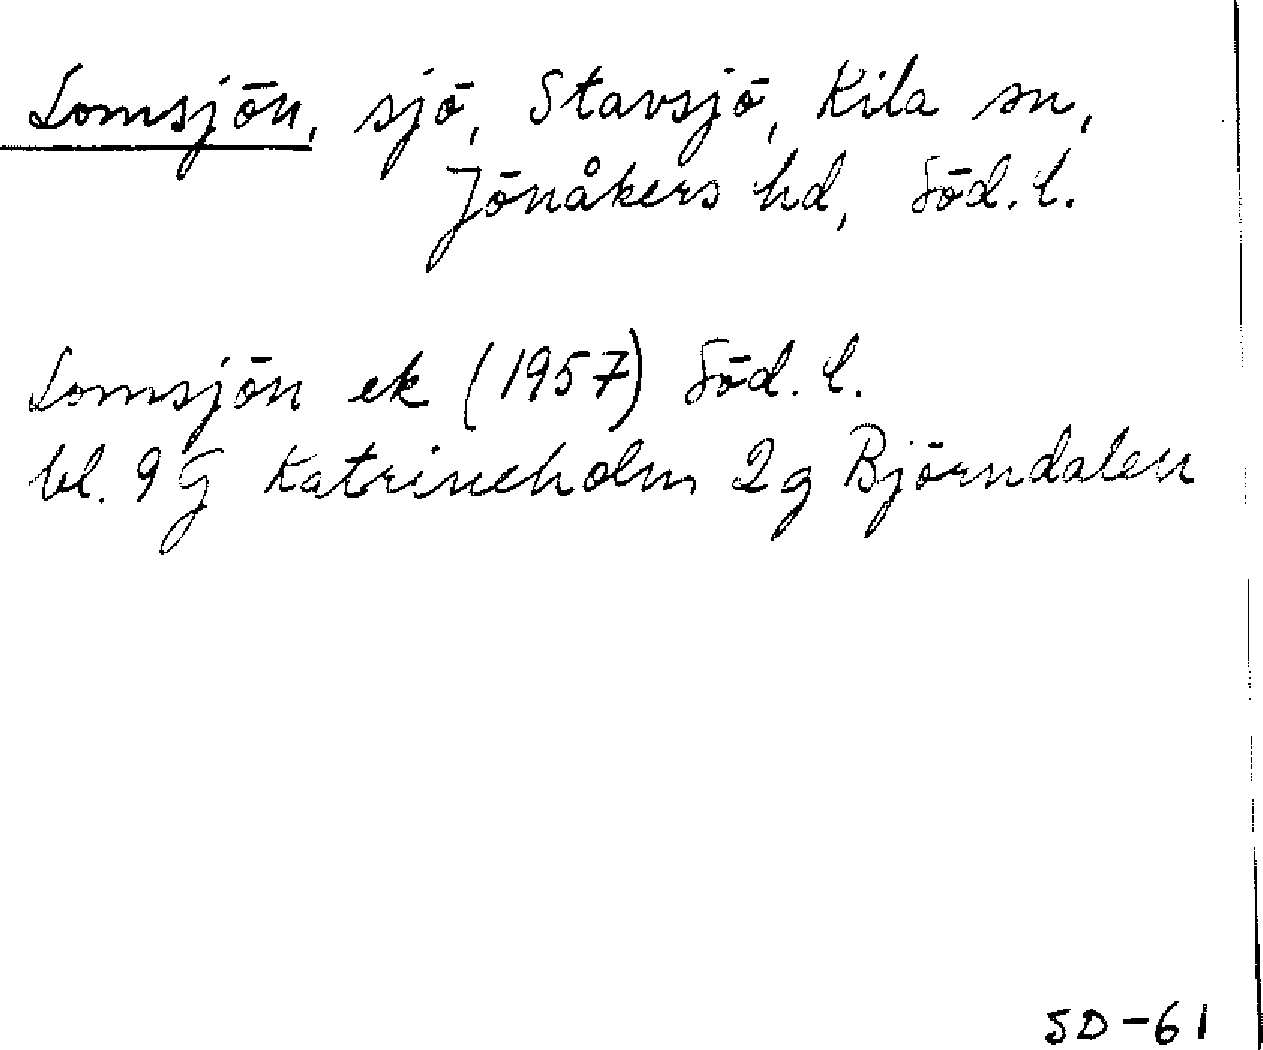 Lomsjön, sjö, Stavsjö, Kila sn,
Jönåkers hd, Söd. l.
Lomsjön ek (1957) Söd. l.
bl. 9 G Katrineholm 2g Björndalen
SD-61